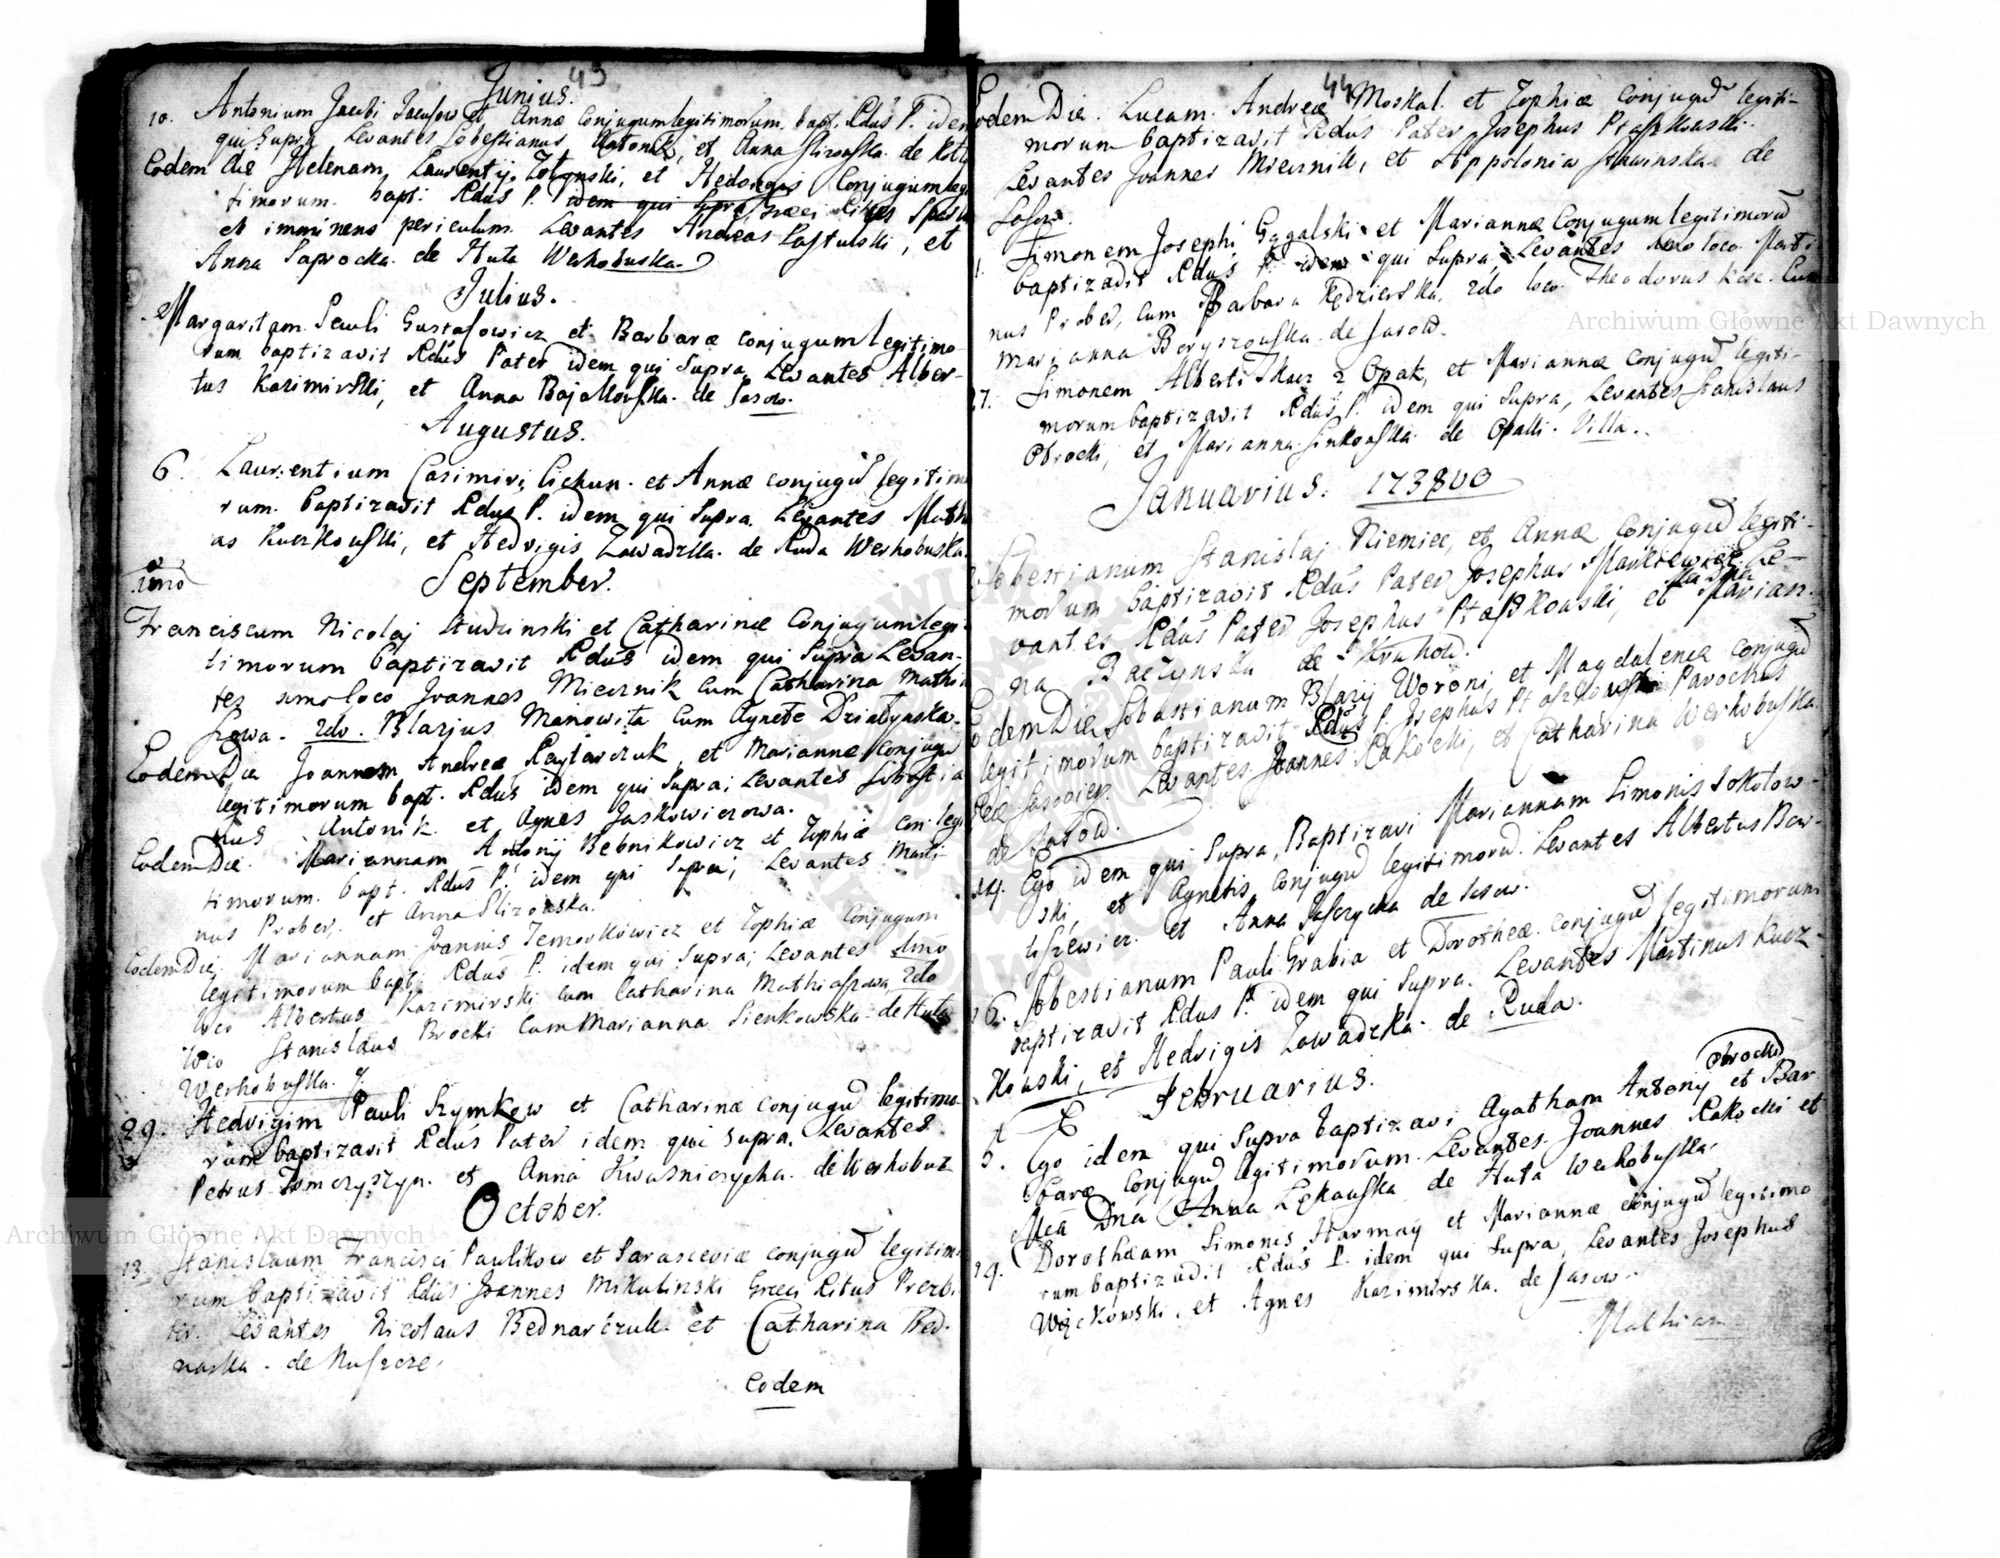 43
Junius.
10. Antonium Jacobi Jacusow et Annæ Conjugum legitimorum. bapt. Rdus P. idem
qui Supra Levantes Sobestianus Antonik, et Anna Slizouska. de
Eodem die Helenam, Laurentij Zolynski, et Hedvigis Conjugum leg
timorum. bapt: Rdus P. idem qui supra, Græci Ritus
et iminens periculum. Levantes Andreas Sastulski, et
Anna Saprocka. de Huta Werhobuska.
Julius.
2 Margaritam. Pauli Gustasowicz et Barbaræ conjugum legitimo
rum baptizavit Rdus Pater idem qui Supra Levantes Alber-
tus Kazimirski, et Anna Bojakouska. de Sasow.
Augustus.
6. Laurentium Casimiri Cichun. et Annæ conjugu legitimo
rum. baptizavit Rdus P. idem qui Supra. Levantes Math
as Kuczkouski, et Hedvigis Zawadzka. de Ruda Werhobuska.
September.
1mo
Franciscum Nicolaj Studzinski et Catharinæ Conjugum legi
timorum baptizavit Rdus idem qui Supra Levan-
tes 1mo loco Joannes Miecznik Cum Catharina Mathia
szowa. 2do. Blazius Manowita Cum Agnete Dzialynska.
Eodem Die Joannem Andreæ Raytarczuk, et Mariannæ conjugu
legitimorum bapt. Rdus idem qui Supra; Levantes Sobestia
nus Antonik. et Agnes Jaskowiczowa.
Eodem Die. Mariannam Antonij Bebnikowicz et Zophiæ con. legi
timorum. bapt. Rdus P. idem qui Supra; Levantes Marti-
nus Prober, et Anna Slizoska.
Eodem Die. Mariannam Joannis Zemorkowicz et Zophiæ Conjugum
legitimorum bapt: Rdus P. idem qui Supra; Levantes 1mo
loco Albertus Kazimirski Cum Catharina Mathiaszowa, 2do
loco Stanislaus Brocki Cum Marianna Sienkowska. de Huta
Werhobuska.
29. Hedvigim Pauli Szymkow et Catharinæ conjugu legitimo
rum baptizavit Rdus Pater idem qui Supra. Levantes
Petrus Tomczyszyn. et Anna Kwasniczycha. de Werhobuz
October.
13. Stanislaum Francisci Paulikow et Parasceviæ conjugu legitimo
rum baptizavit Rdus Joannes Mikulinski Græci Ritus Presbi
ter. Levantes Nicolaus Bednarczuk. et Catharina Bed-
narska. de Nuszcze.
Eodem
44
Eodem Die. Lucam. Andreæ Moskal. et Zophiæ Conjugu legiti-
morum baptizavit Rdus Pater Josephus Ptaszkouski.
Levantes Joannes Miecznik, et Appolonia Slawinska de
Sasow.
1. Simonem Josephi Gągalski et Mariannæ Conjugum legitimoru
baptizavit Rdus P. idem qui Supra, Levantes 1mo loco Marti
nus Prober, Cum Barbara Kędzierska, 2do loco Theodorus Kesc. Cum
Marianna Beryszouska. de Sasow.
27. Simonem Alberti Tkacz z Opak, et Mariannæ conjugu legiti-
morum baptizavit Rdus P. idem qui Supra, Levantes Stanislaus
Obrocki, et Marianna Sinkouska de Opaki. Villa.
Januarius. 1738
Sobestianum Stanislaj Niemiec, et Annæ Conjugu legiti-
morum baptizavit Rdus Pater Josephus Markiewicz Le-
vantes Rdus Pater Josephus Ptaszkouski, et Marian-
na Baczynska de Krakow.
Eodem Die Sobastianum Blazij Woroni, et Magdalenæ conjugu
legitimorum baptizavit Rdus P. Josephus Ptaszkouski Parochus
Sasovien. Levantes. Joannes Rakocki, et Catharina Werhobuska
de Sasow.
14. Ego idem qui Supra, Baptizavi Mariannam Simonis Sokolow-
ski, et Agnetis conjugu legitimoru. Levantes Albertus Bar-
et Anna de Sasow.
16. Sobestianum Pauli Grabia et Dorotheæ. conjugu legitimorum
baptizavit Rdus P. idem qui Supra. Levantes Martinus Kucz-
kouski, et Hedvigis Zawadzka. de Ruda.
Februarius.
5. Ego idem qui Supra baptizavi Agatham Antonij Obrocki et Bar
baræ Conjugu legitimorum. Levantes. Joannes Rakocki et
Mca Dna Anna Lękauska de Huta Werhobuska.
19. Dorotheam Simonis Harmay et Mariannæ conjugu legitimo
rum baptizavit Rdus P. idem qui Supra, Levantes Josephus
Więckowski. et Agnes Kazimirska. de Sasow.
Mathiam
Archiwum Główne Akt Dawnych
Archiwum Główne Akt Dawnych